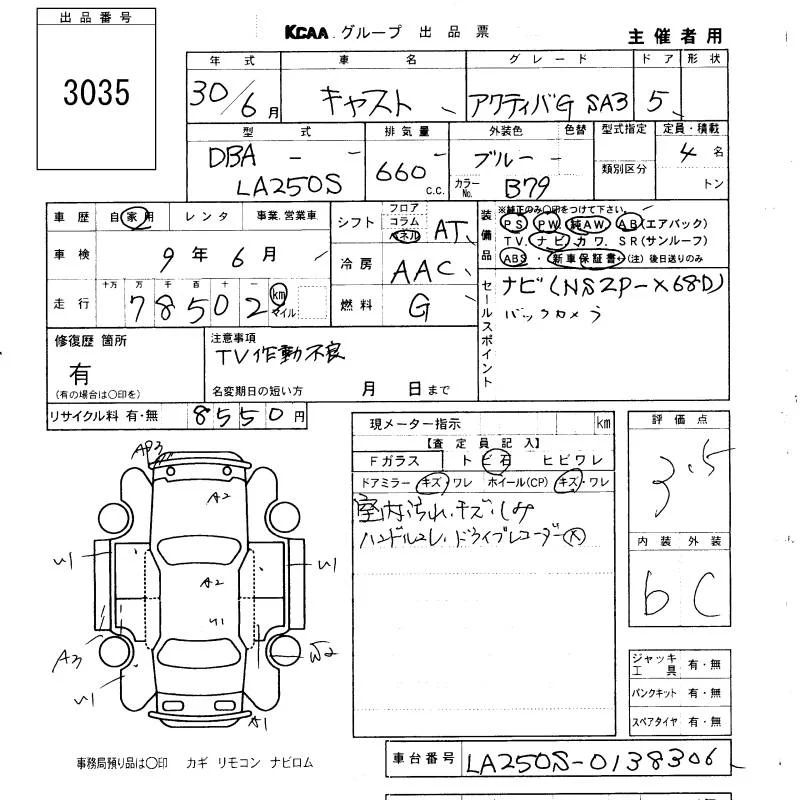 出品番号
3035
KCAA グループ 出品票
主催者用
年式 車名 グレード ドア 形状
30/6月 キャスト アクティバG SA3 5
型式 排気量 外装色 色替 型式指定 定員・積載
DBA - - 660 c.c. ブルー - 類別区分 4 名
LA250S カラーNo. B79 トン
車歴 自家用 レンタ 事業.営業車
車検 9年6月
走行 十万 万 千 百 十 一 78502 km マイル
シフト フロア コラム パネル AT
冷房 AAC
燃料 G
装備品 ※純正のみ○印をつけて下さい。
PS PW 純AW AB(エアバック)
TV. ナビ カワ. SR(サンルーフ)
ABS・新車保証書(注)後日送りのみ
セールスポイント
ナビ(NSZP-X68D)
バックカメラ
修復歴 箇所
有
(有の場合は○印を)
注意事項
TV作動不良
名変期日の短い方 月 日まで
リサイクル料 有・無 8550円
現メーター指示 km
【査定員記入】
Fガラス ト ビ石 ヒビワレ
ドアミラー キズ・ワレ ホイール(CP) キズ・ワレ
室内汚れ.キズ.しみ
ハンドルスレ.ドライブレコーダー
評価点
3.5
内装 外装
b C
A93
A2
U1
U1
A2
U1
A3
W2
U1
A1
ジャッキ工具 有・無
パンクキット 有・無
スペアタイヤ 有・無
事務局預り品は○印 カギ リモコン ナビロム
車台番号 LA250S-0138306